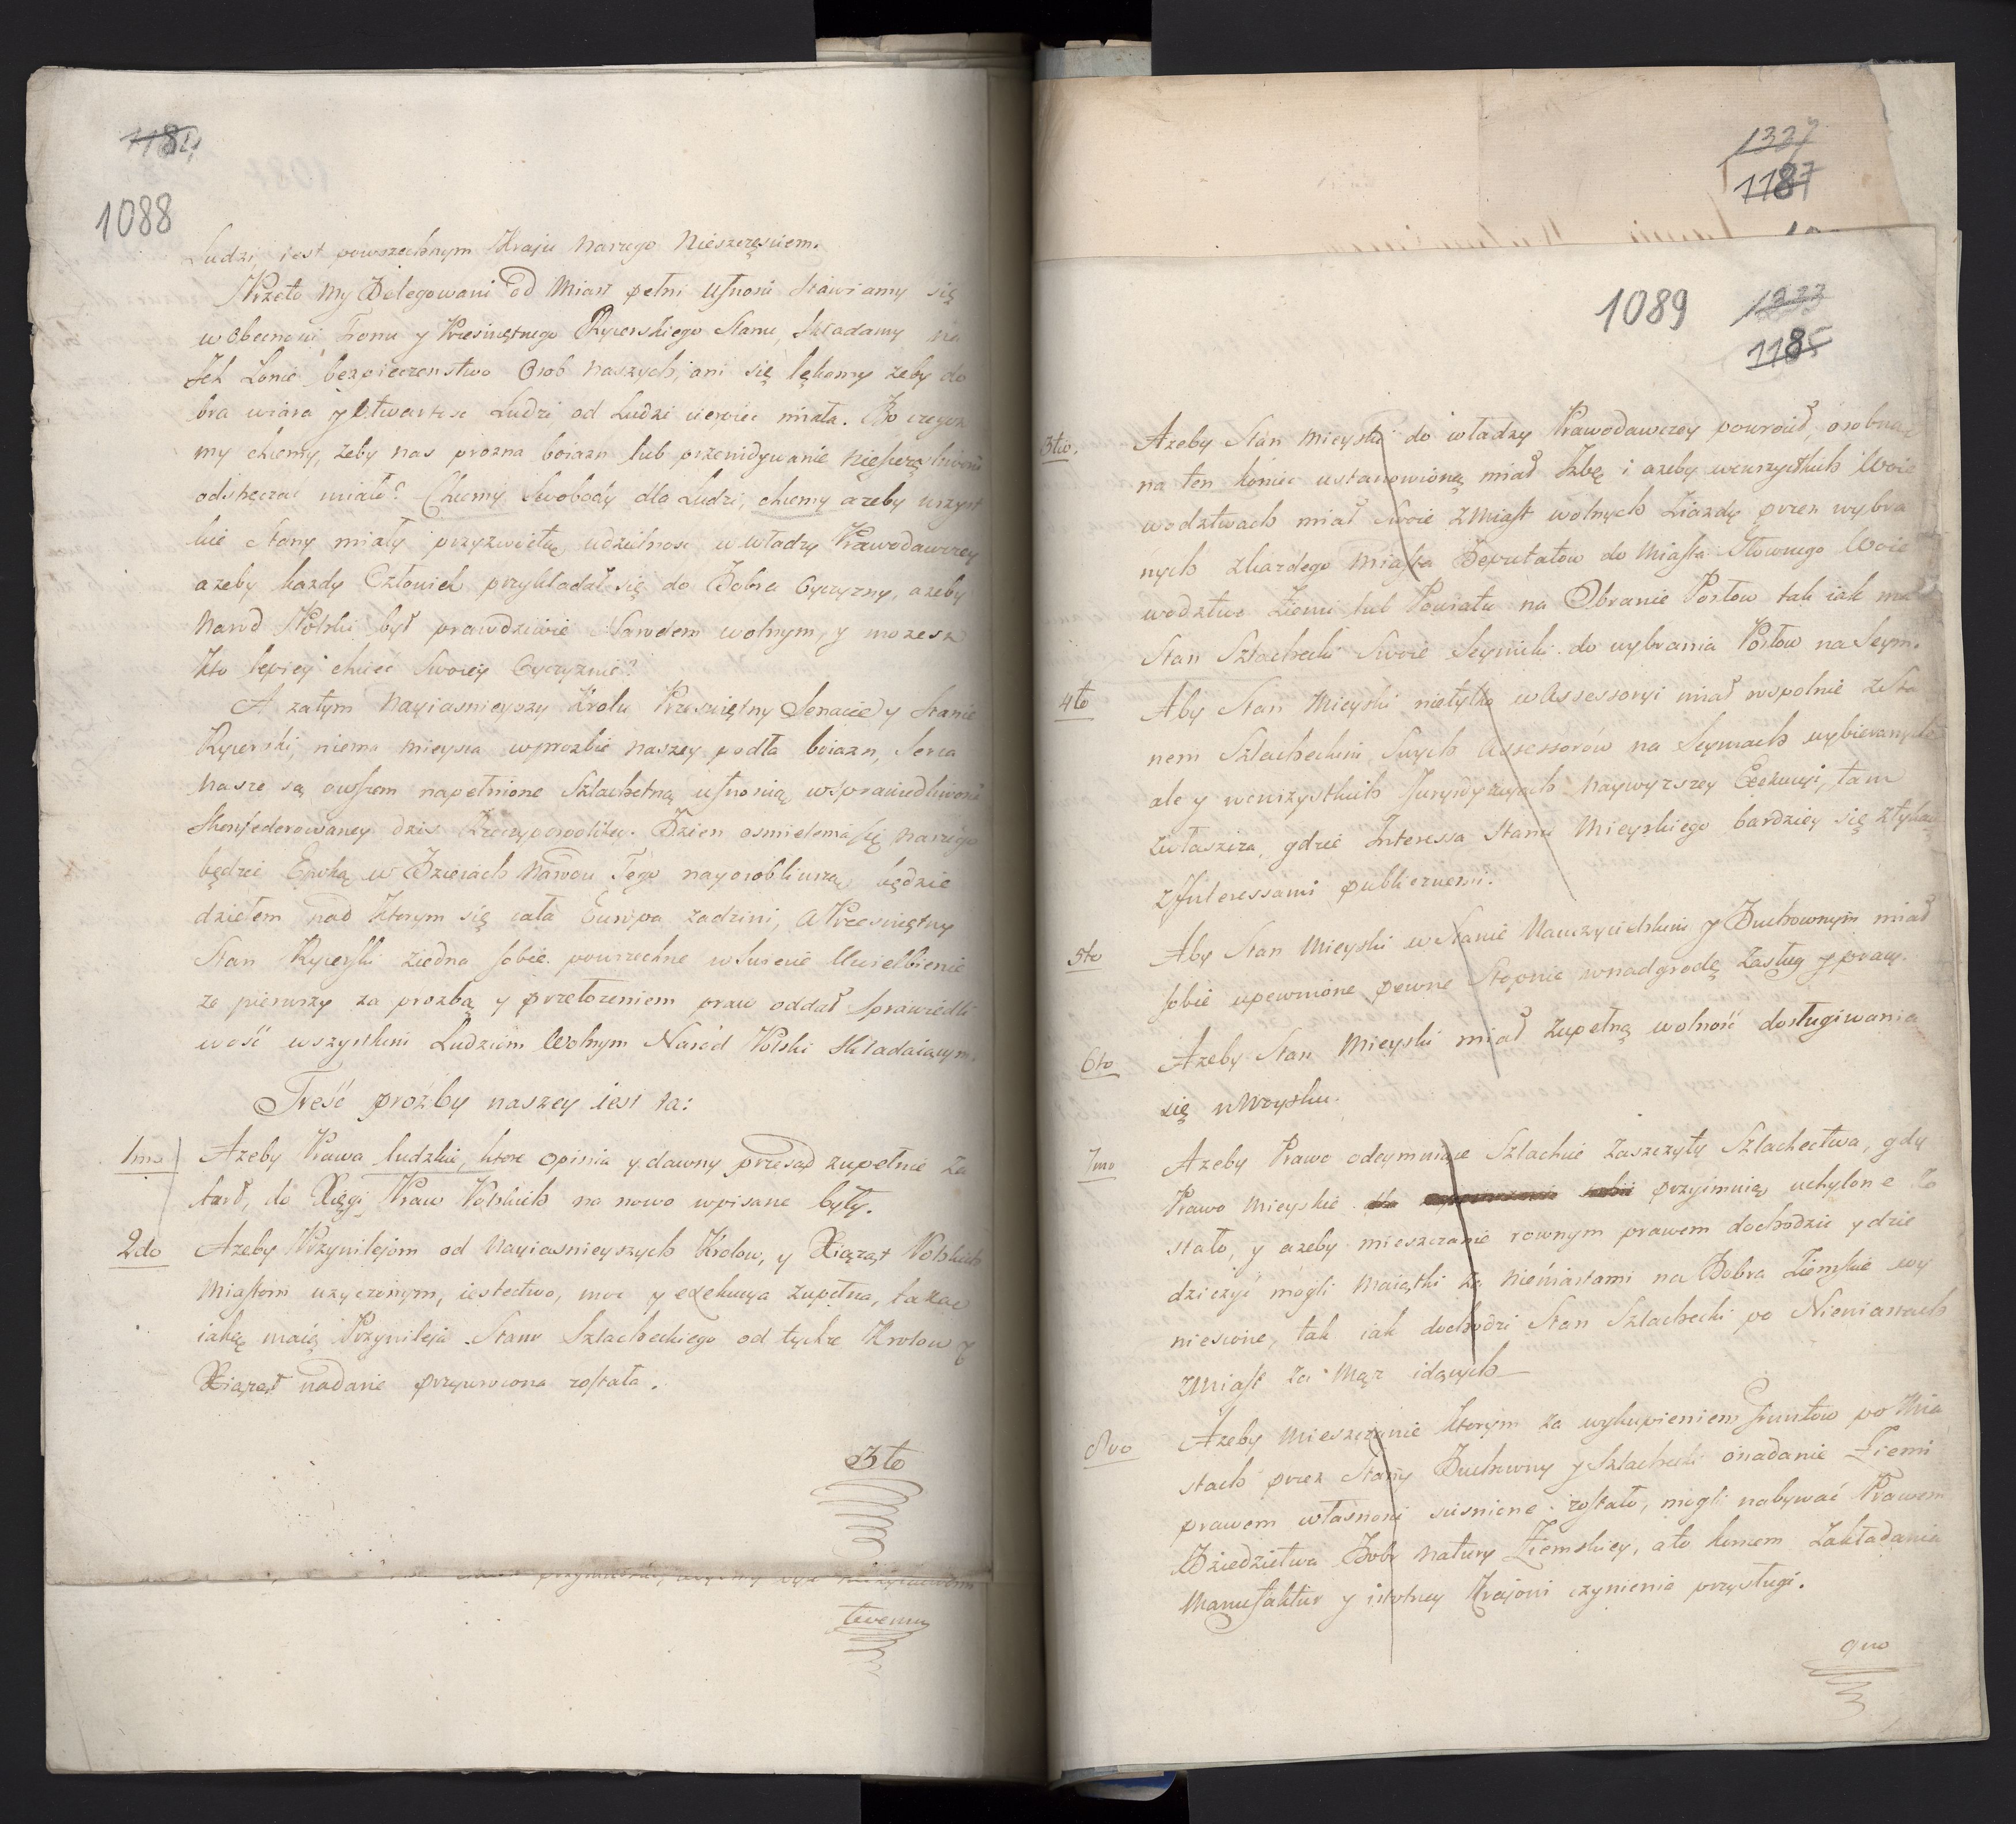 1184
1088
Ludzi, iest powszechnym Kraju naszego Nieszczęściem.
Przeto My Delegowani od Miast pełni ufnosci stawiamy się
w Obecnosci Tronu y Przeswiętnego Rycerskiego Stanu, składamy na
Ich Łonie bezpieczenstwo Osob naszych, ani się lękamy zeby do
bra wiara y Otwartosc Ludzi od Ludzi cierpiec miała. Bo czegoz
my chcemy, zeby nas prozna boiazn lub przewidywanie
odstręczac miało? Chcemy Swobody dla Ludzi, chcemy azeby wszyst
kie Stany miały przyzwoitą udzielnosc w władzy Prawodawczey
azeby kazdy Człowiek przykładał się do Dobra Oyczyzny, azeby
Narod Polski był prawdziwie Narodem wolnym, y mozesz
kto lepiey chciec Swoiey Oyczyznie?
A zatym Nayiasnieyszy Krolu Przeswiętny Senacie y Stanie
Rycerski, niema mieysca w prozbie naszey podła boiazn, Serca
nasze są owszem napełnione Szlachetną ufnoscią w sprawiedliwosci
Skonfederowaney dzis Rzeczypospolitey. Dzien osmielenia się naszego
będzie Epoką w Dzieiach Narodu Tego nayosobliwszą, będzie
dziełem nad ktorym się cała Europa zadziwi, a Przeswiętny
Stan Rycerski ziedna sobie powszechne w Swiecie Uwielbienie
ze pierwszy za prozbą y przełozeniem praw oddał sprawiedli
wość wszystkim Ludziom Wolnym Naród Polski składaiącym.
Treść proźby naszey iest ta:
1mo Azeby Prawa ludzkie, ktore opinia y dawny przesąd zupełnie za
tarł, do Xięgi Praw Polskich na nowo wpisane były.
2do Azeby Przywileiom od Nayiasnieyszych Krolow, y Xiąząt Polskich
Miastom uzyczonym, iestestwo, moc y exekucya zupełna, takaz
iaką maią Przywileia Stanu Szlacheckiego od tychze Krolow y
Xiąząt nadane przywrocona została.
3to
tecemu
1337
1187
1089
1333
1185
3tio. Azeby Stan mieyski do władzy Prawodawczey powrocił, osobną
na ten koniec ustanowioną miał Izbę i azeby we wszystkich Woie
wodztwach miał swoie z Miast wolnych Ziazdy przez wybra
nych z kazdego Miasta Deputatow do Miasta Głownego Woie
wodztwa Ziemi lub Powiatu na Obranie Posłow tak iak ma
Stan Szlachecki swoie Seymiki do wybrania Posłow na Seym.
4to Aby Stan Mieyski nietylko w Assessoryi miał wspolnie ze Sta
nem Szlacheckim, swych Assessorów na Seymach wybieranych
ale y we wszystkich Jurysdykcyach naywyzszey Exekucyi, tam
zwłaszcza, gdzie Interessa Stanu Mieyskiego bardziey się stykaią
z Interessami publicznemi.
5to Aby Stan Mieyski w Stanie Nauczycielskim y Duchownym miał
sobie upewnione pewne Stopnie w nadgrodę zasług y pracy.
6to Azeby Stan Mieyski miał zupełną wolność dosługiwania
się w Woysku.
7mo Azeby Prawo odeymuiące Szlachcie zaszczyty Szlachectwa, gdy
Prawo Mieyskie przyimuią, uchylone zo
stało, y azeby mieszczanie rownym prawem dochodzic y dzie
dziczyć mogli maiątki za Niewiastami na Dobra Ziemskie wy
niesione, tak iak dochodzi Stan Szlachecki po Niewiastach
z Miast za Mąz idących—
8vo Azeby Mieszczanie ktorym za wykupieniem Gruntow po Mia
stach przez Stany Duchowny y Szlachecki onadanie Ziemi
prawem własnosci scisnione zostało, mogli nabywać Prawem
Dziedzictwa Dobr natury Ziemskiey, a to koncem zakładania
Manufaktur y istotney Kraiowi czynienia przysługi.
9no